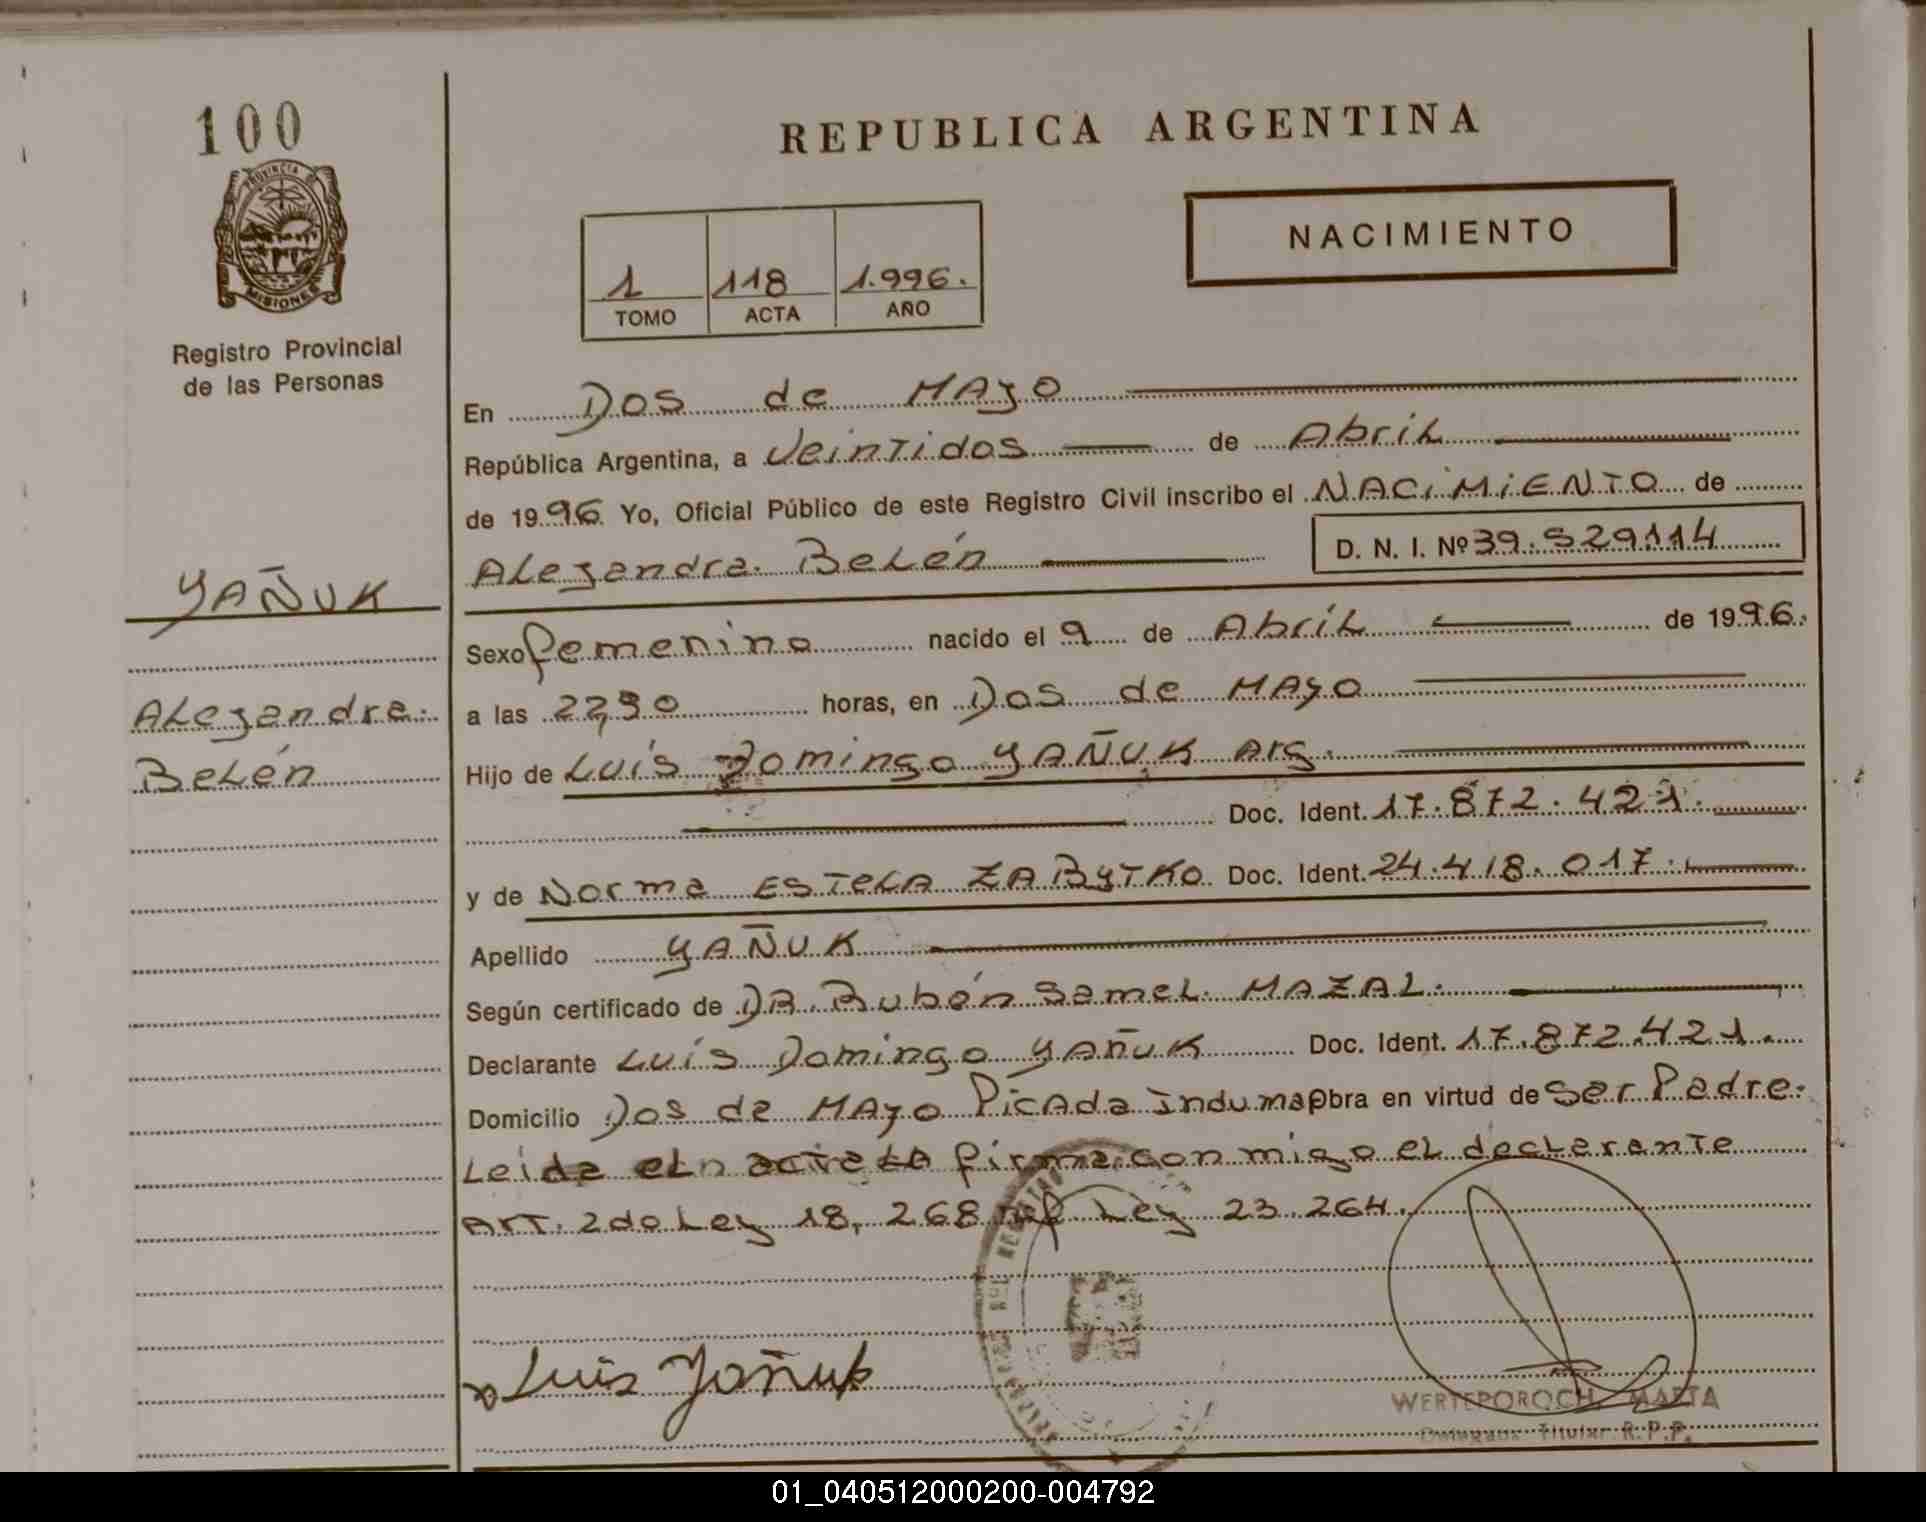 100
PROVINCIA DE
MISIONES
Registro Provincial
de las Personas
YAÑUK
Alejandra
Belén
REPUBLICA ARGENTINA
NACIMIENTO
1 118 1.996.
TOMO ACTA AÑO
En Dos de MAyo
República Argentina, a Veintidos de Abril
de 1996 Yo, Oficial Público de este Registro Civil inscribo el NACIMIENTO de
Alejandra Belén D. N. I. Nº 39.529.114
Sexo femenino nacido el 9 de Abril de 1996.
a las 22,30 horas, en Dos de MAyo
Hijo de Luís Domingo YAÑUK Arg.
Doc. Ident. 17.872.421.
y de Norma Estela ZABYTKO Doc. Ident. 24.418.017.
Apellido YAÑUK
Según certificado de DR. Rubén Samel MAZAL.
Declarante Luís Domingo yañuk Doc. Ident. 17.872.421.
Domicilio Dos de MAyo Picada Indumar obra en virtud de Ser Padre.
Leida el acta la firma con migo el declarante
Art. 2do Ley 18,268 ref Ley 23.264.
Luis Yañuk
WERTEPOROCH, MARTA
Delegada Titular R.P.P.
01_040512000200-004792